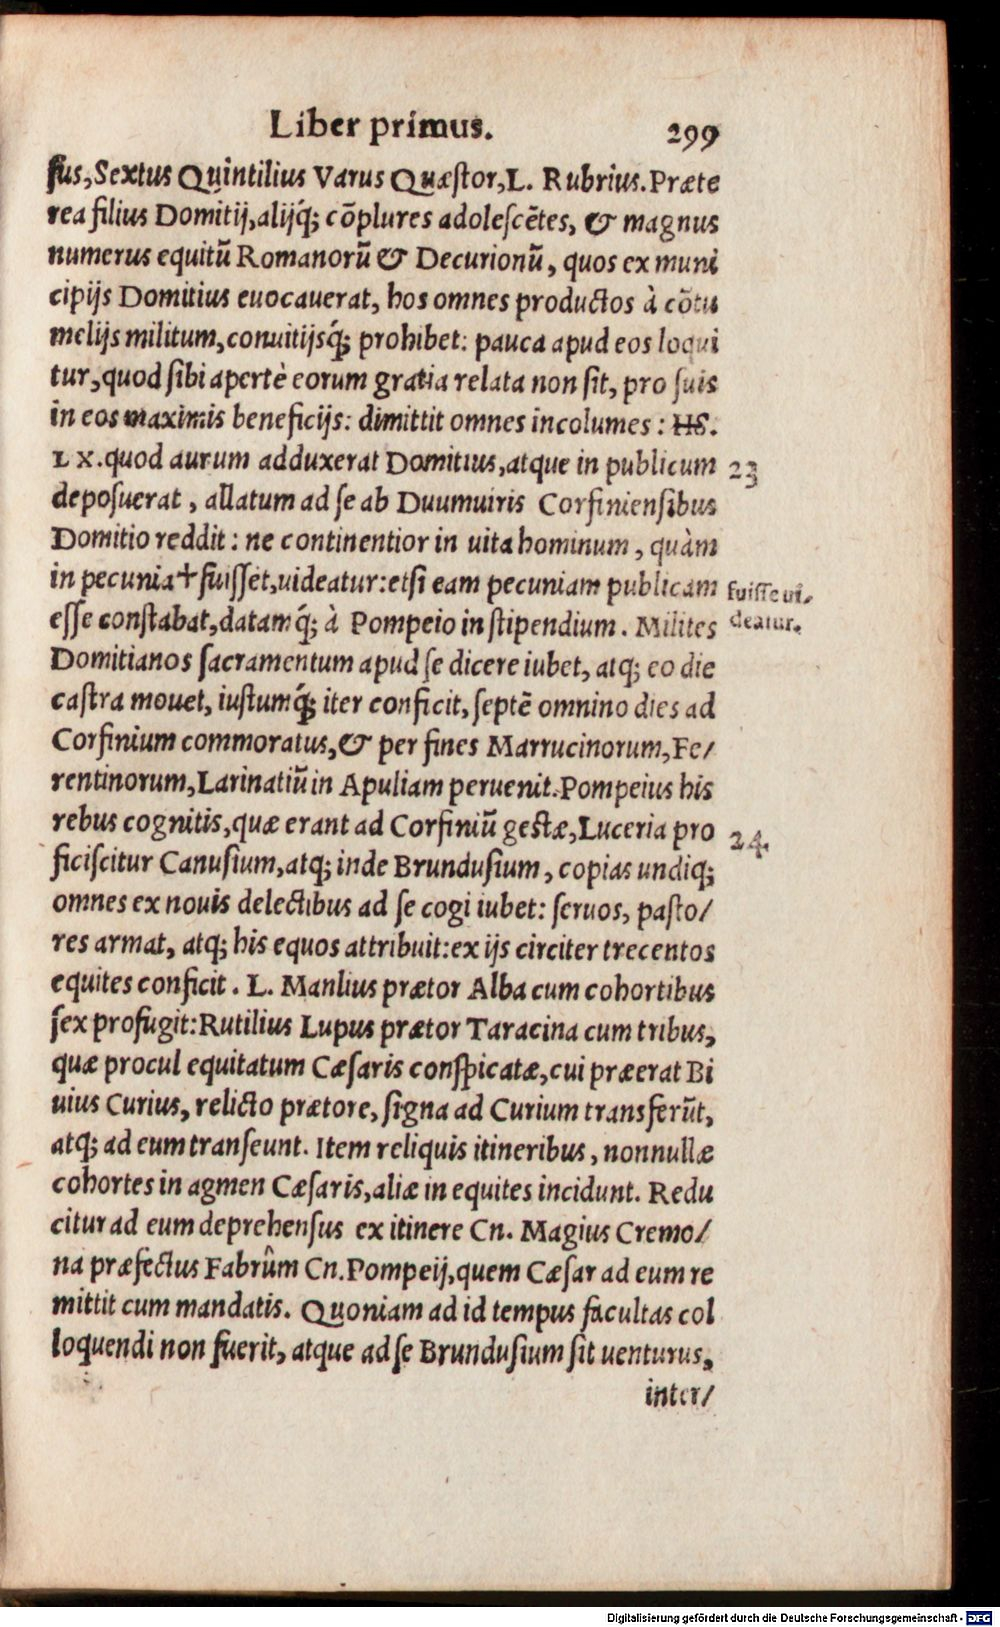 Liber primus. 299
ſus, Sextus Quintilius Varus Quæſtor, L. Rubrius. Præte
rea filius Domitij, alijq́; cõplures adoleſcẽtes, & magnus
numerus equitũ Romanorũ & Decurionũ, quos ex muni
cipijs Domitius euocauerat, hos omnes productos à cõtu
melijs militum, conuitijsq́; prohibet: pauca apud eos loqui
tur, quod ſibi apertè eorum gratia relata non ſit, pro ſuis
in eos maximis beneficijs: dimittit omnes incolumes: HS.
LX. quod aurum adduxerat Domitius, atque in publicum 23
depoſuerat, allatum ad ſe ab Duumuiris Corfinienſibus
Domitio reddit: ne continentior in uita hominum, quàm
in pecunia✝fuiſſet, uideatur: etſi eam pecuniam publicam fuiſſe ui-
eſſe conſtabat, datamq́; à Pompeio in ſtipendium. Milites deatur.
Domitianos ſacramentum apud ſe dicere iubet, atq; eo die
caſtra mouet, iuſtumq́; iter conficit, ſeptẽ omnino dies ad
Corfinium commoratus, & per fines Marrucinorum, Fe/
rentinorum, Larinatiũ in Apuliam peruenit. Pompeius his
rebus cognitis, quæ erant ad Corfiniũ geſtæ, Luceria pro 24.
ficiſcitur Canuſium, atq; inde Brunduſium, copias undiq;
omnes ex nouis delectibus ad ſe cogi iubet: ſeruos, paſto/
res armat, atq; his equos attribuit: ex ijs circiter trecentos
equites conficit. L. Manlius prætor Alba cum cohortibus
ſex profugit: Rutilius Lupus prætor Taracina cum tribus,
quæ procul equitatum Cæſaris conſpicatæ, cui præerat Bi
uius Curius, relicto prætore, ſigna ad Curium transferũt,
atq; ad eum tranſeunt. Item reliquis itineribus, nonnullæ
cohortes in agmen Cæſaris, aliæ in equites incidunt. Redu
citur ad eum deprehenſus ex itinere Cn. Magius Cremo/
na præfectus Fabrûm Cn. Pompeij, quem Cæſar ad eum re
mittit cum mandatis. Quoniam ad id tempus facultas col
loquendi non fuerit, atque ad ſe Brunduſium ſit uenturus,
inter/
Digitalisierung gefördert durch die Deutsche Forschungsgemeinschaft - DFG